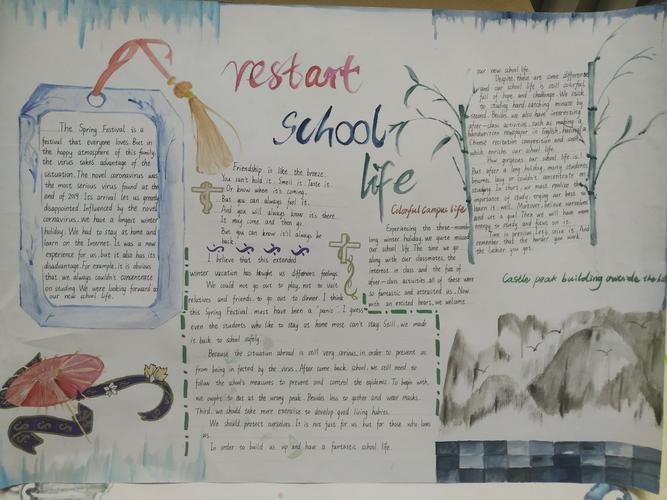 restart
school
life
The Spring Festival is a
festival that everyone loves. But in
the happy atmosphere of this family,
the virus takes advantage of the
situation. The novel coronavirus was
the most serious virus found at the
end of 2019. Its arrival let us greatly
disappointed. Influenced by the novel
cornavirus, we have a longest winter
holiday. We had to stay at home and
learn on the Internet. It was a new
experience for us, but it also has its
disadvantage. For example, it is obvious
that we always couldn't concencrate
on studing. We were looking forward to
our new school life.
Friendship is like the breeze.
You can't hold it. Smell it. taste it.
Or know when it's coming.
But you can always feel it.
And you will always know it's there.
It may come and then go.
But you can know it'll always be
back.
I believe that this extended
winter vacation has brought us different feelings.
We could not go out to play, not to visit
relatives and friends, to go out to dinner. I think
this Spring Festival must have been a "panic". I guess
even the students who like to stay at home most can't stay. Still, we made
it back to school safely.
Because the situation abroad is still very serious, in order to prevent us
from being infected by the virus. After come back school, we still need to
follow the school's measures to prevent and control the epidemic. To begin with,
we ought to eat at the wrong peak. Besides less to gather and wear masks.
Third, we should take more exercise to develop good living habies.
We should protect ourselves. It is not just for us, but for those who love
us.
In order to build us up and have a fantastic school life.
Colorful Campus Life
Experiencing the three-month
long winter holiday, we quite missed
our school life. The time we go
along with our classmates, the
interest in class and the fun of
after-class activities, all of these were
so fantastic and attracted us. Now,
with an excited heart, we welcome
our new school life.
Despite, there are some differents
and our school life is still colorful,
full of hope and challenge. We stick
to studing hard, catching minute by
second. Besides, we also have interesting
after-class activities, such as making a
handwritten newspaper in English, having a
Chinese recitation competition and
which enriches our school life.
How gorgeous our school life is!
But after a long holiday, many students
became lazy or couldn't concentrate on
studing. In short, we must realize the
importance of study, trying our best to
learn it well. Moreover, believe ourselves
and set a goal. Then we will have more
energy to study and focus on it.
Time is precious. Let's seize it. And
remember that the harder you work,
the luckier you get.
Castle peak building outside the